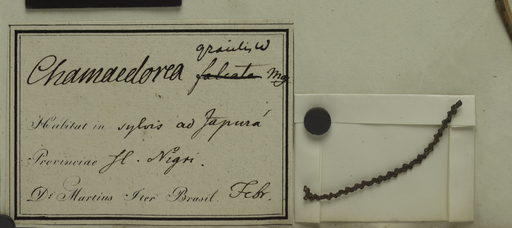 gracilis W
Chamaedorea falcata Mg
Habitat in sylvis ad Japurá
Provinciae fl. Nigri.
Dr Martius Iter Brasil. Febr.